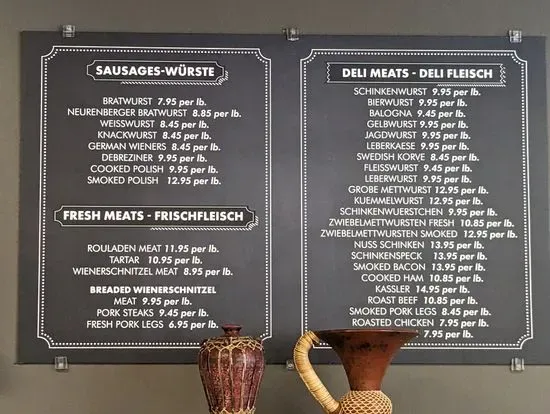 SAUSAGES-WÜRSTE
BRATWURST 7.95 per lb.
NEURENBERGER BRATWURST 8.85 per lb.
WEISSWURST 8.45 per lb.
KNACKWURST 8.45 per lb.
GERMAN WIENERS 8.45 per lb.
DEBREZINER 9.95 per lb.
COOKED POLISH 9.95 per lb.
SMOKED POLISH 12.95 per lb.
FRESH MEATS - FRISCHFLEISCH
ROULADEN MEAT 11.95 per lb.
TARTAR 10.95 per lb.
WIENERSCHNITZEL MEAT 8.95 per lb.
BREADED WIENERSCHNITZEL
MEAT 9.95 per lb.
PORK STEAKS 9.45 per lb.
FRESH PORK LEGS 6.95 per lb.
DELI MEATS - DELI FLEISCH
SCHINKENWURST 9.95 per lb.
BIERWURST 9.95 per lb.
BALOGNA 9.45 per lb.
GELBWURST 9.95 per lb.
JAGDWURST 9.95 per lb.
LEBERKAESE 9.95 per lb.
SWEDISH KORVE 8.45 per lb.
FLEISSWURST 9.45 per lb.
LEBERWURST 9.95 per lb.
GROBE METTWURST 12.95 per lb.
KUEMMELWURST 12.95 per lb.
SCHINKENWUERSTCHEN 9.95 per lb.
ZWIEBELMETTWURSTEN FRESH 10.85 per lb.
ZWIEBELMETTWURSTEN SMOKED 12.95 per lb.
NUSS SCHINKEN 13.95 per lb.
SCHINKENSPECK 13.95 per lb.
SMOKED BACON 13.95 per lb.
COOKED HAM 10.85 per lb.
KASSLER 14.95 per lb.
ROAST BEEF 10.85 per lb.
SMOKED PORK LEGS 8.45 per lb.
ROASTED CHICKEN 7.95 per lb.
7.95 per lb.